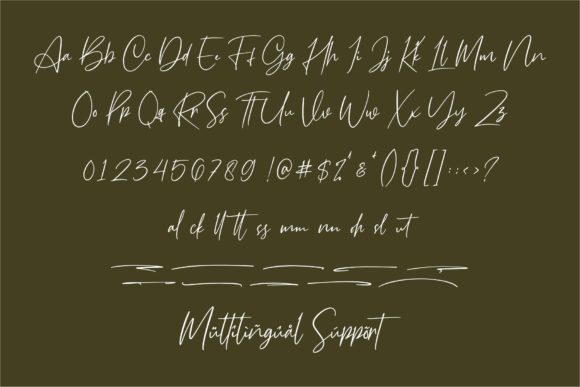 Aa Bb Cc Dd Ee Ff Gg Hh Ii Jj Kk Ll Mm Nn
Oo Pp Qq Rr Ss Tt Uu Vv Ww Xx Yy Zz
0123456789 !@#$%^&*(){}[]:;<>?
al ck ll tt ss mm nn oh sl ut
Mültilingúål Súppört